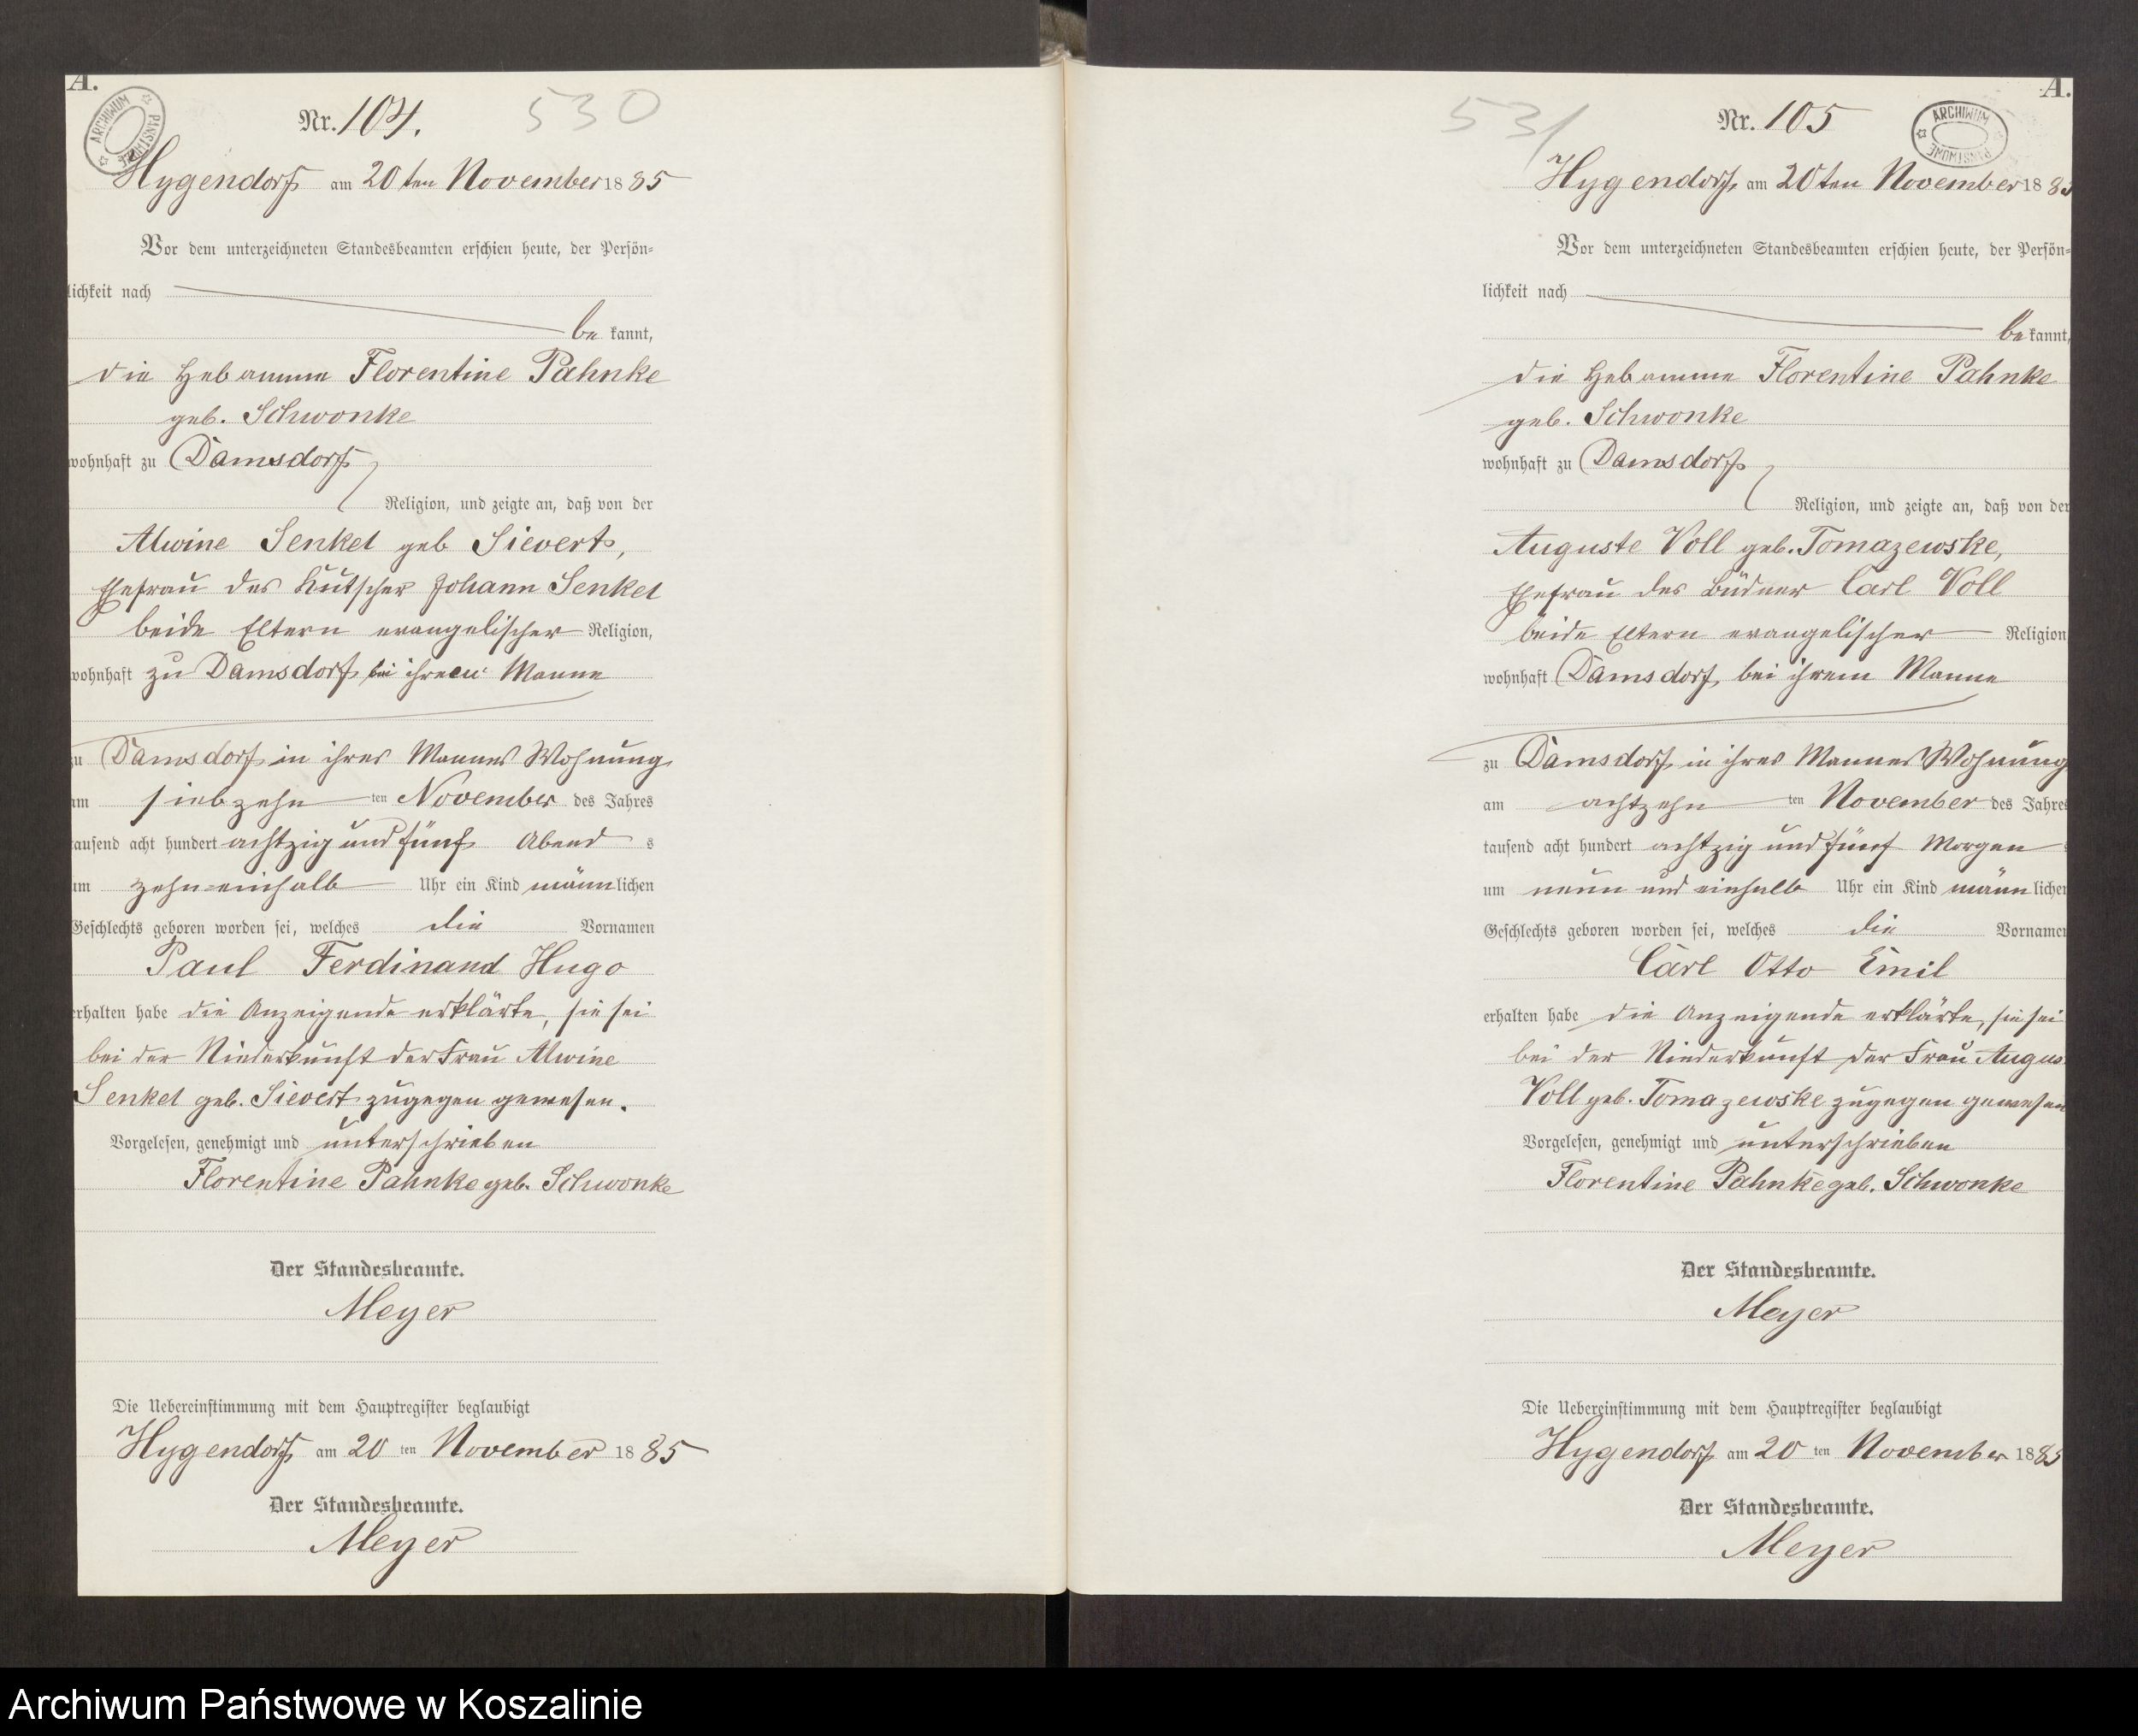 A.
ARCHIWUM PAŃSTWOWE
Nr. 104.
530
Hygendorf am 20ten November 1885
Vor dem unterzeichneten Standesbeamten erschien heute, der Persön-
lichkeit nach
be kannt,
die Hebamme Florentine Pahnke
geb. Schwonke
wohnhaft zu Damsdorf
Religion, und zeigte an, daß von der
Alwine Senkel geb Sievert,
Ehefrau des Kutscher Johann Senkel
beide Eltern evangelischer Religion,
wohnhaft zu Damsdorf bei ihrem Manne
zu Damsdorf in ihres Mannes Wohnung
am siebzehn ten November des Jahres
tausend acht hundert achtzig und fünf Abend s
um zehn einhalb Uhr ein Kind männlichen
Geschlechts geboren worden sei, welches die Vornamen
Paul Ferdinand Hugo
erhalten habe die Anzeigende erklärte, sie sei
bei der Niederkunft der Frau Alwine
Senkel geb. Sievert zugegen gewesen.
Vorgelesen, genehmigt und unterschrieben
Florentine Pahnke geb. Schwonke
Der Standesbeamte.
Meyer
Die Uebereinstimmung mit dem Hauptregister beglaubigt
Hygendorf am 20 ten November 1885
Der Standesbeamte.
Meyer
A.
531
Nr. 105
ARCHIWUM PAŃSTWOWE
Hygendorf am 20ten November 1885
Vor dem unterzeichneten Standesbeamten erschien heute, der Persön-
lichkeit nach
be kannt,
die Hebamme Florentine Pahnke
geb. Schwonke
wohnhaft zu Damsdorf
Religion, und zeigte an, daß von der
Auguste Voll geb. Tomazewske,
Ehefrau des Büdner Carl Voll
beide Eltern evangelischer Religion
wohnhaft Damsdorf, bei ihrem Manne
zu Damsdorf in ihres Mannes Wohnung
am achtzehn ten November des Jahres
tausend acht hundert achtzig und fünf Morgen
um neun und einhalb Uhr ein Kind männlichen
Geschlechts geboren worden sei, welches die Vornamen
Carl Otto Emil
erhalten habe die Anzeigende erklärte, sie sei
bei der Niederkunft der Frau Augus
Voll geb. Tomazewske zugegen gewesen
Vorgelesen, genehmigt und unterschrieben
Florentine Pahnke geb. Schwonke
Der Standesbeamte.
Meyer
Die Uebereinstimmung mit dem Hauptregister beglaubigt
Hygendorf am 20 ten November 1885
Der Standesbeamte.
Meyer
Archiwum Państwowe w Koszalinie